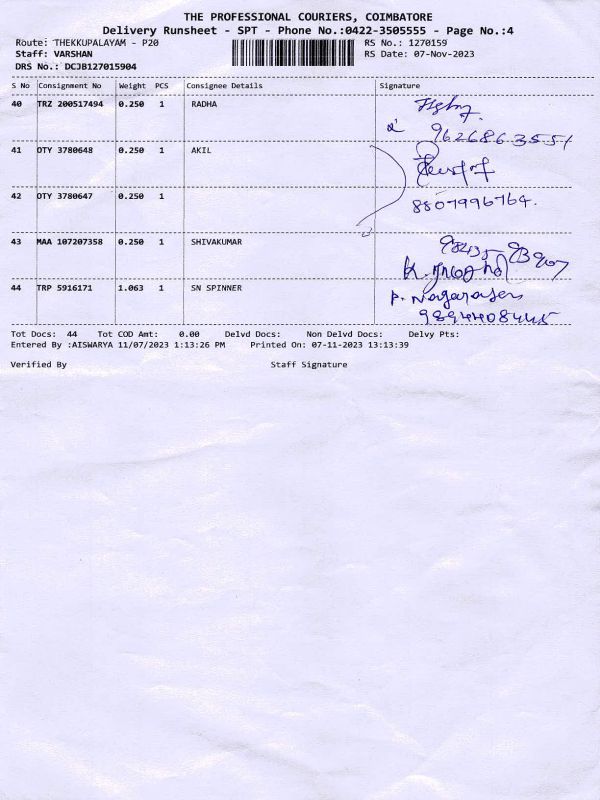 THE PROFESSIONAL COURIERS, COIMBATORE
Delivery Runsheet - SPT - Phone No.:0422-3505555 - Page No.:4
Route: THEKKUPALAYAM - P20 RS No.: 1270159
Staff: VARSHAN RS Date: 07-Nov-2023
DRS No.: DCJB127015904
S No Consignment No Weight PCS Consignee Details Signature
40 TRZ 200517494 0.250 1 RADHA
9626863551
41 OTY 3780648 0.250 1 AKIL
42 OTY 3780647 0.250 1
8807996764.
43 MAA 107207358 0.250 1 SHIVAKUMAR
44 TRP 5916171 1.063 1 SN SPINNER P. Nagarajan
9894408445
Tot Docs: 44 Tot COD Amt: 0.00 Delvd Docs: Non Delvd Docs: Delvy Pts:
Entered By :AISWARYA 11/07/2023 1:13:26 PM Printed On: 07-11-2023 13:13:39
Verified By Staff Signature